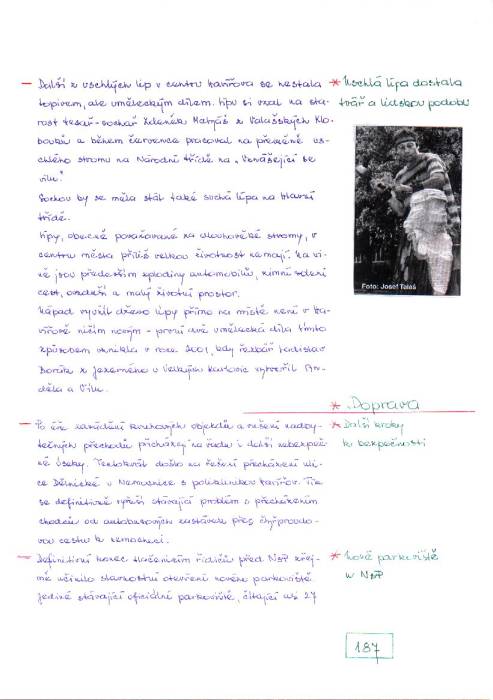 - Další z uschlých lip v centru Havířova se nestala
topivem, ale uměleckým dílem. Lípu si vzal na sta-
rost tesař-sochař Zdeněk Matyáš z Valašských Klo-
bouků a během července pracoval na přeměně us-
chlého stromu na Národní třídě na „Vznášející se
vílu."
Sochou by se měla stát také suchá lípa na Hlavní
třídě.
Lípy, obecně považované za dlouhověké stromy, v
centru města příliš velkou životnost nemají. Na vi-
ně jsou především zplodiny automobilů, zimní solení
cest, ovzduší a malý životní prostor.
Nápad využít dřevo lípy přímo na místě není v Ha-
vířově ničím novým - první dvě umělecká díla tímto
způsobem vznikla v roce 2001, kdy řezbář Ladislav
Borák z Jezerného u Velkých Karlovic vytvořil An-
děla a Vílu.
* Uschlá lípa dostala
tvář a lidskou podobu
Foto: Josef Talaš
* Doprava
- Po éře zavádění kruhových objezdů a rušení nadby-
tečných přechodů přicházejí na řadu i další nebezpeč-
né úseky. Tentokrát došlo na řešení přecházení uli-
ce Dělnické u Nemocnice s poliklinikou Havířov. Tím
se definitivně vyřeší stávající problém s přecházením
chodců od autobusových zastávek přes čtyřproudo-
vou cestu k nemocnici.
* Další kroky
k bezpečnosti
- Definitivní konec tlačenicím řidičů před NsP zřej-
mě učinilo slavnostní otevření nového parkoviště.
Jediné stávající oficiální parkoviště, čítající asi 27
* Nové parkoviště
u NsP
187